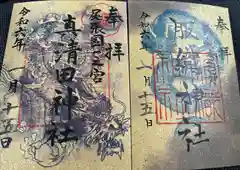 奉拝
尾張國一之宮
真清田神社
令和六年
月十五日
奉拝
服織神社
令和六
一月十五日